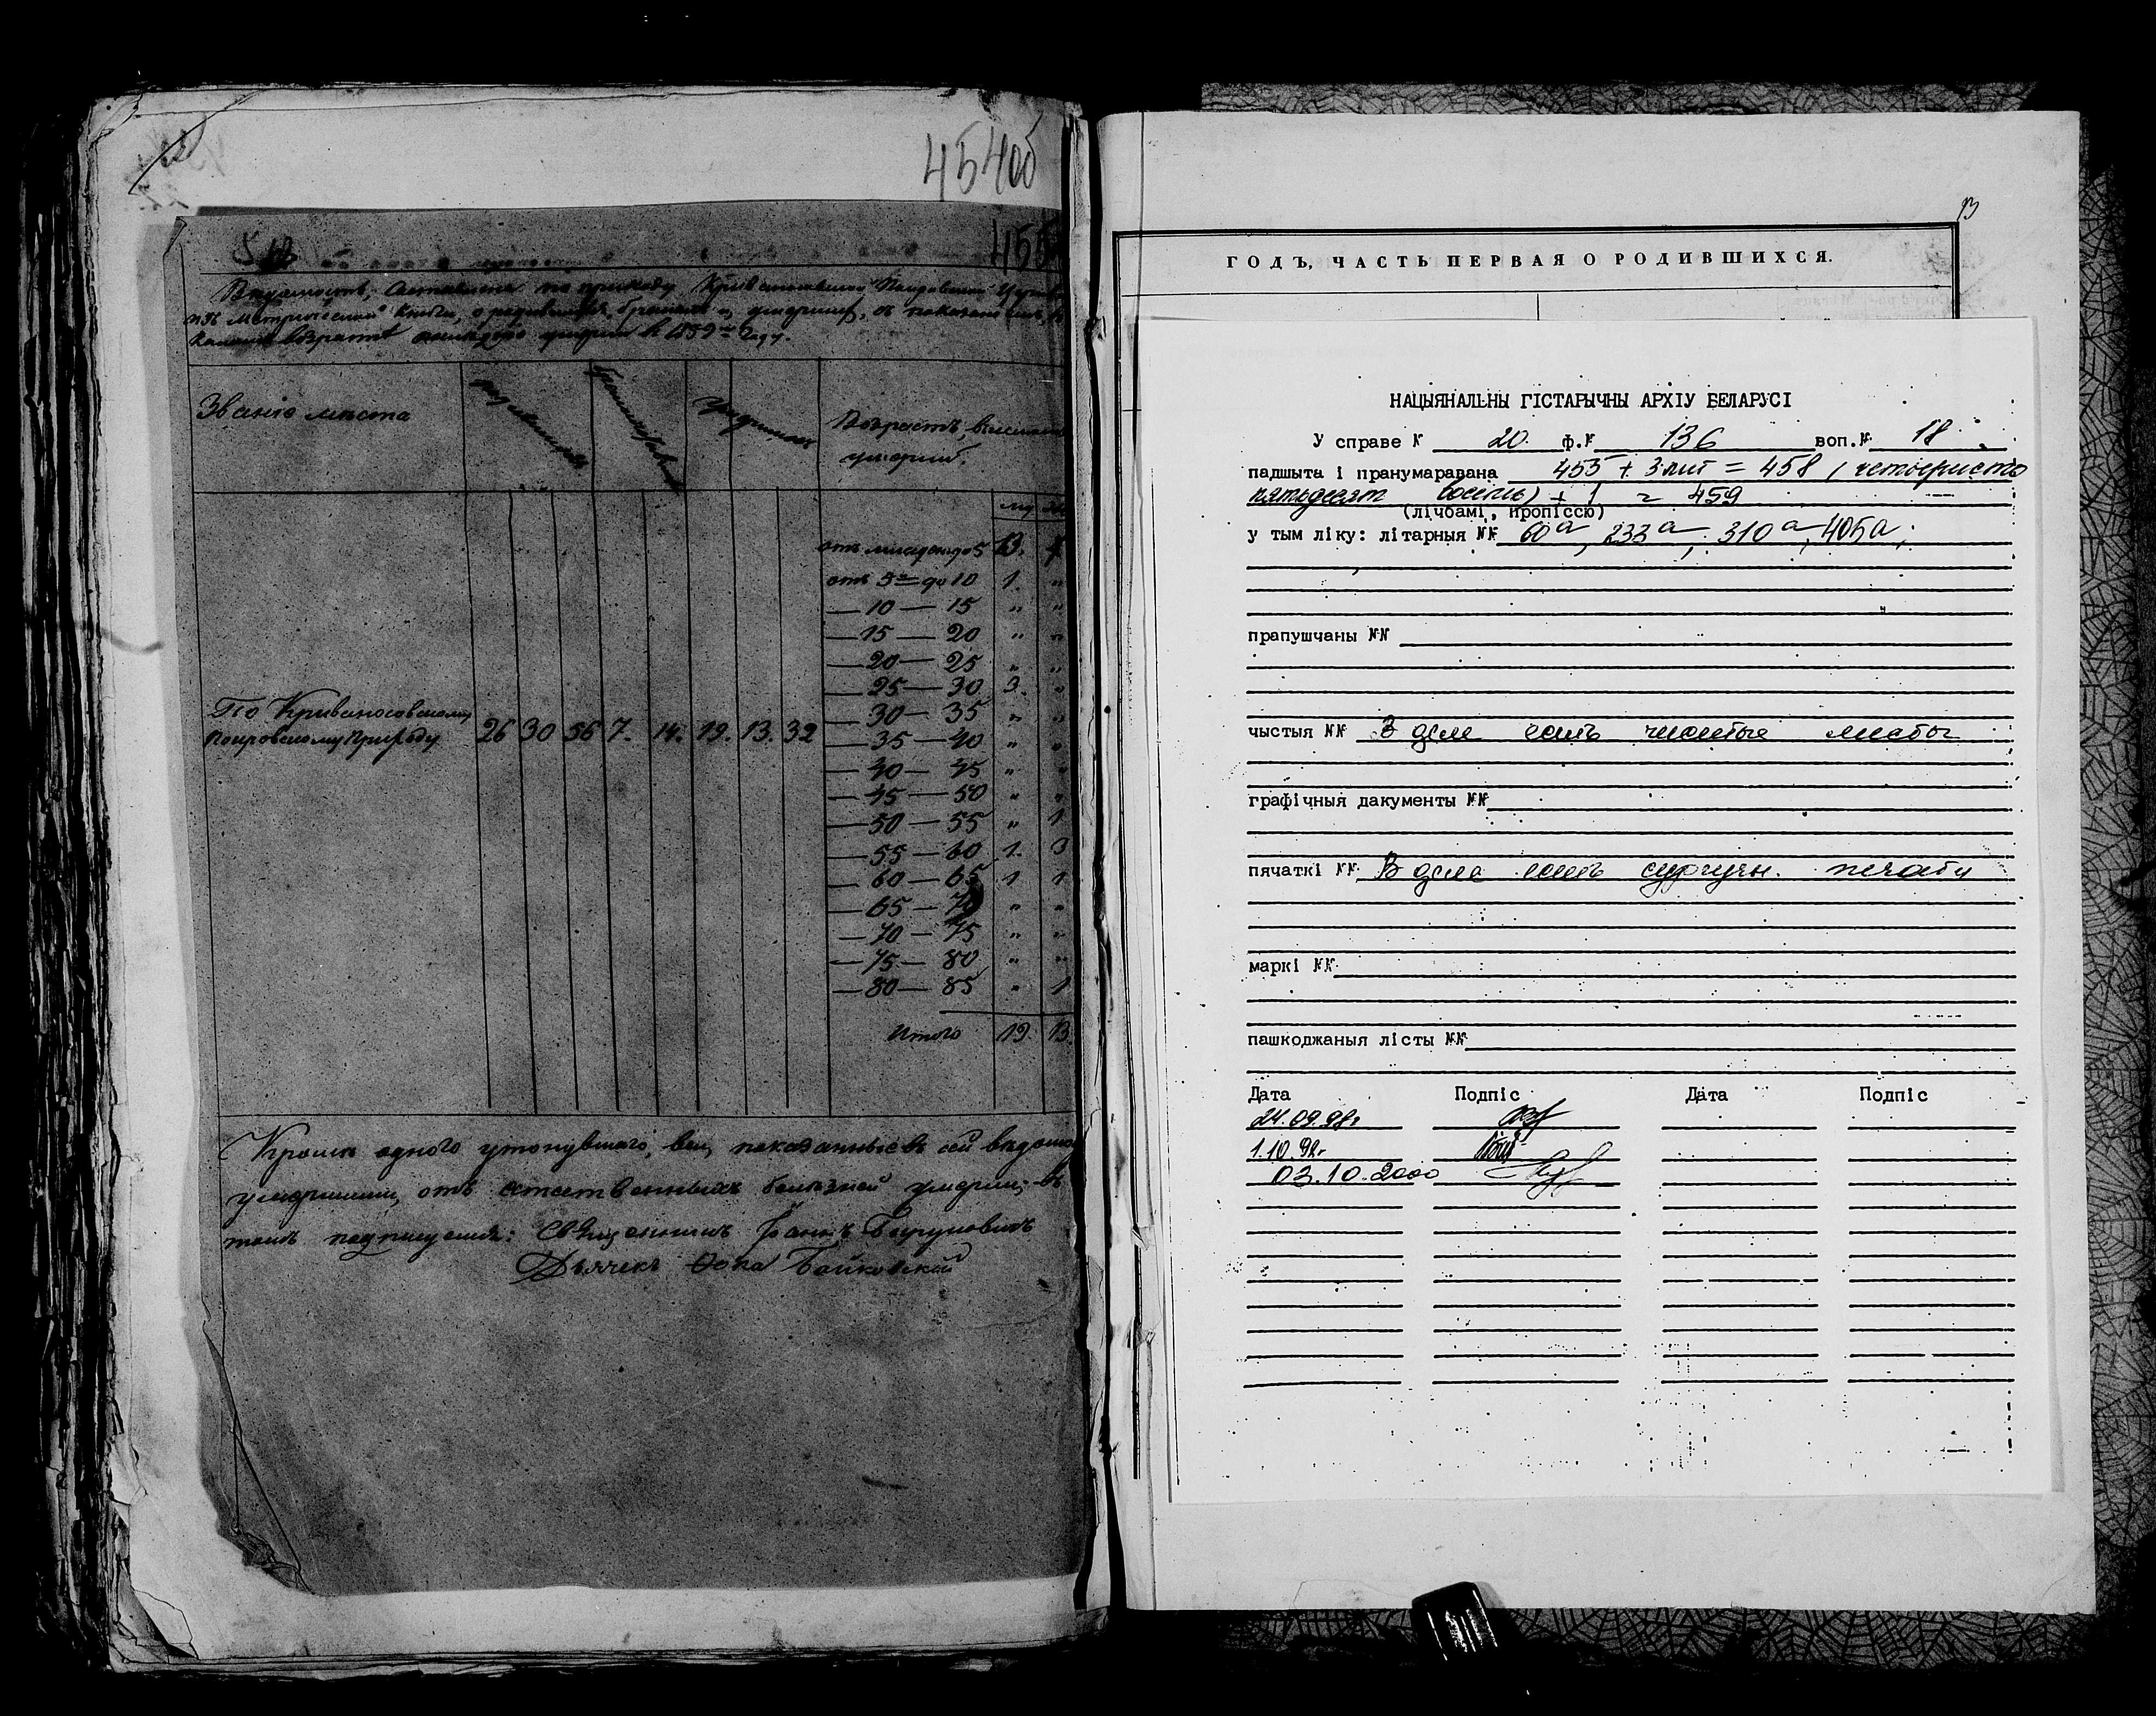 454об
455
Ведомость, составлена по приходу Кривоносовской Покровской Церкви
изъ Метрической книги, о родившихся, бракахъ и умершихъ, съ показаніемъ, въ
какомъ возрасте умерли въ 1859 м году.
Званіе места
родившихся
бракосочетавш
умершихъ
Возрастъ, въ коемъ
умерли.
му же
отъ младен до 5 13. 7
отъ 5 ти до 10 1. "
— 10 — 15 " "
— 15 — 20 " "
— 20 — 25 " "
— 25 — 30 3. "
— 30 — 35 " "
По Кривоносовскому
Покровскому Приходу 26 30 56 7. 14. 19. 13. 32
— 35 — 40 " "
— 40 — 45 " "
— 45 — 50 " "
— 50 — 55 " 1
— 55 — 60 1. 3
— 60 — 65 1 1
— 65 — 70 " "
— 70 — 75 " "
— 75 — 80 " "
— 80 — 85 " 1
Итого 19. 13.
Кроме одного утонувшаго, все показанные въ сей ведомо
умершими, отъ естественныхъ болезней умерли; въ
томъ подписуемся: Священникъ
Дьячекъ Ѳома Байковскій
ГОДЪ, ЧАСТЬ ПЕРВАЯ О РОДИВШИХСЯ.
НАЦЫЯНАЛЬНЫ ГІСТАРЫЧНЫ АРХІЎ БЕЛАРУСІ
У справе № 20 ф.№ 136 воп.№ 18
падшыта і пранумаравана 455 + 3 лит = 458 (четыреста
пятьдесят восемь) + 1 = 459
(лічбамі, пропіссю)
у тым ліку: літарныя №№ 60а, 233а, 310а, 405а;
прапушчаны №№
чыстыя №№ В деле есть чистые листы
графічныя дакументы №№
пячаткі №№ В деле есть сургучн. печати
маркі №№
пашкоджаныя лісты №№
Дата Подпіс Дата Подпіс
24.09.98г
1.10.98г
03.10.2000